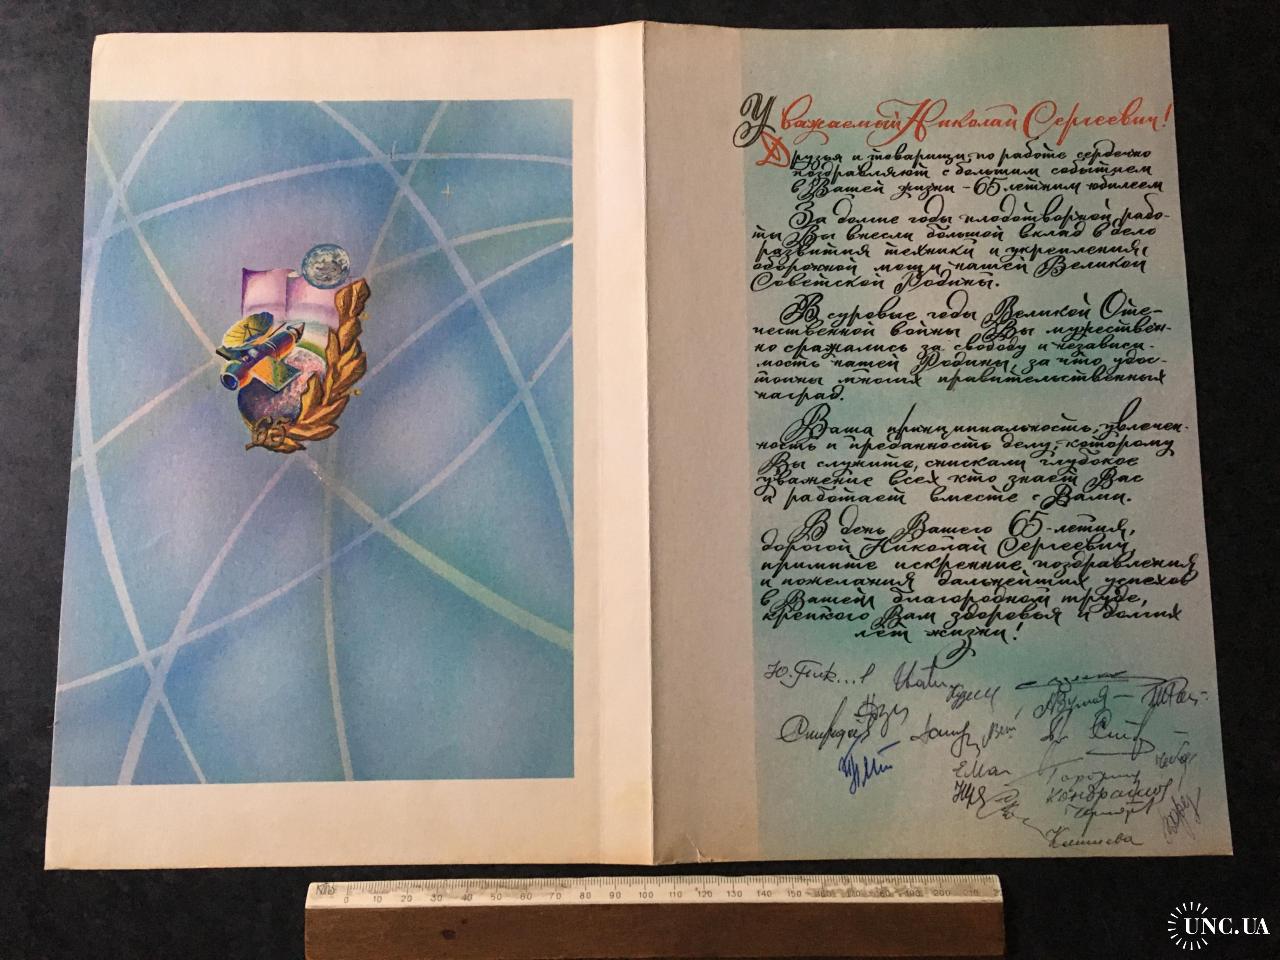 65
Уважаемый Николай Сергеевич!
Друзья и товарищи по работе сердечно
поздравляют с большим событием
в Вашей жизни – 65-летним юбилеем
За долгие годы плодотворной рабо-
ты Вы внесли большой вклад в дело
развития техники и укрепления
оборонной мощи нашей Великой
Советской Родины.
В суровые годы Великой Оте-
чественной войны Вы мужествен-
но сражались за свободу и независи-
мость нашей Родины, за что удос-
тоины многих правительственных
наград.
Ваша принципиальность, увлечен-
ность и преданность делу, которому
Вы служите, снискали глубокое
уважение всех кто знает Вас
и работает вместе с Вами.
В день Вашего 65-летия,
дорогой Николай Сергеевич,
примите искренние поздравления
и пожелания дальнейших успехов
в Вашем благородном труде,
крепкого Вам здоровья и долгих
лет жизни!
Кондрашов
0 10 20 30 40 50 60 70 80 90 100 110 120 130 140 150 160 170 180 190 200 210
UNC.UA